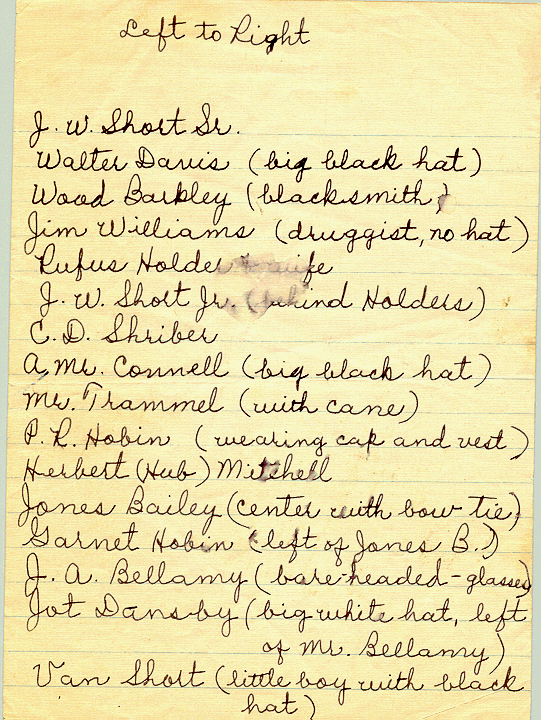 Left to Right
J. W. Short Sr.
Walter Davis (big black hat)
Wood Barkley (blacksmith)
Jim Williams (druggist, no hat)
Rufus Holder & wife
J. W. Short Jr. (behind Holders)
C. D. Shriber
A Mr. Connell (big black hat)
Mr. Trammel (with cane)
P. R. Hobin (wearing cap and vest)
Herbert (Hub) Mitchell
Jones Bailey (center with bow tie)
Garnet Hobin (left of Jones B.)
J. A. Bellamy (bare-headed-glasses)
Jot Dansby (big white hat, left
of Mr. Bellamy)
Van Short (little boy with black
hat)